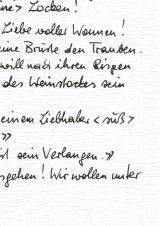 ne> Locken!
Liebe voller Wonnen!
eine Brüste den Trauben.
will nach ihren Rispen
des Weinstockes sein
einem Liebhaber <süß>
»>
ist sein Verlangen.»
gehen! Wir wollen unter